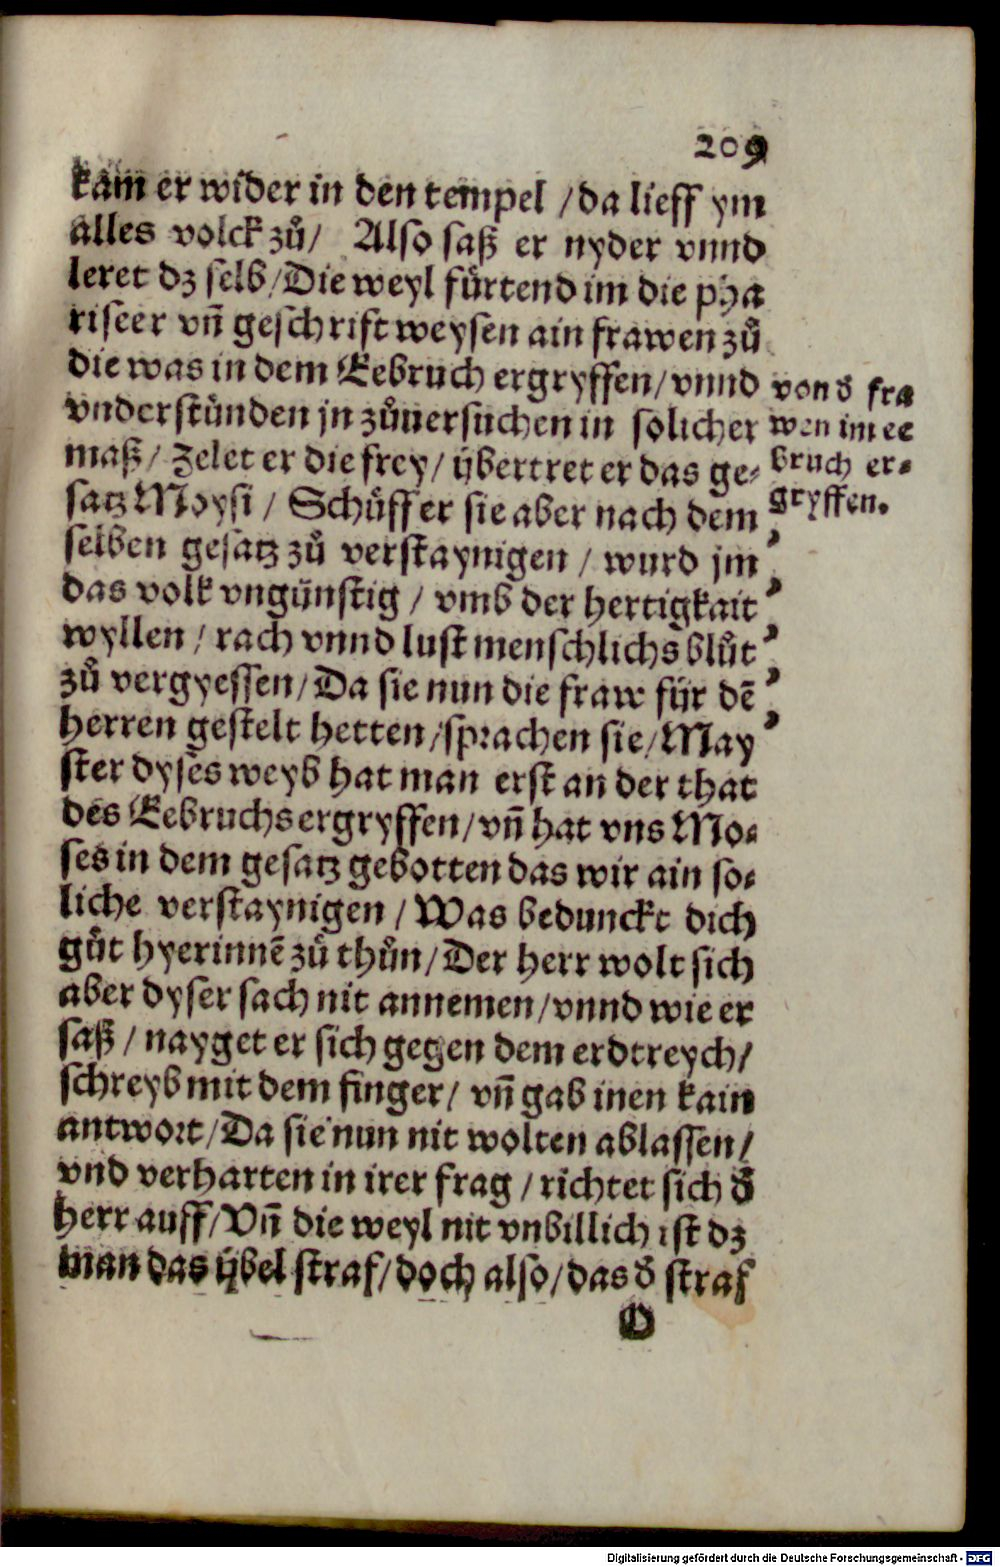 209
kam er wider in den tempel / da lieff ym
alles volck zů / Also saß er nyder vnnd
leret dz selb / Die weyl fürtend im die pha
riseer vn̄ geschrift weysen ain frawen zů
die was in dem Eebruch ergryffen / vnnd
vnderstünden jn zůuersuchen in solicher
maß / Zelet er die frey / ÿbertret er das ge⸗
satz Moysi / Schůff er sie aber nach dem
selben gesatz zů verstaynigen / wurd jm
das volk vngünstig / vmb der hertigkait
wyllen / rach vnnd lust menschlichs blůt
zů vergyessen / Da sie nun die fraw für dē
herren gestelt hetten / sprachen sie / May
ster dyses weyb hat man erst an der that
des Eebruchs ergryffen / vn̄ hat vns Mo⸗
ses in dem gesatz gebotten das wir ain so⸗
liche verstaynigen / Was bedunckt dich
gůt hyerinnē zů thůn / Der herr wolt sich
aber dyser sach nit annemen / vnnd wie er
saß / nayget er sich gegen dem erdtreych /
schreyb mit dem finger / vn̄ gab inen kain
antwort / Da sie nun nit wolten ablassen /
vnd verharten in irer frag / richtet sich d̄
herr auff / Vn̄ die weyl nit vnbillich ist dz
man das ÿbel straf / doch also / das d̄ straf
O
von d̄ fra
wen im ee
bruch er⸗
gryffen.
Digitalisierung gefördert durch die Deutsche Forschungsgemeinschaft - DFG